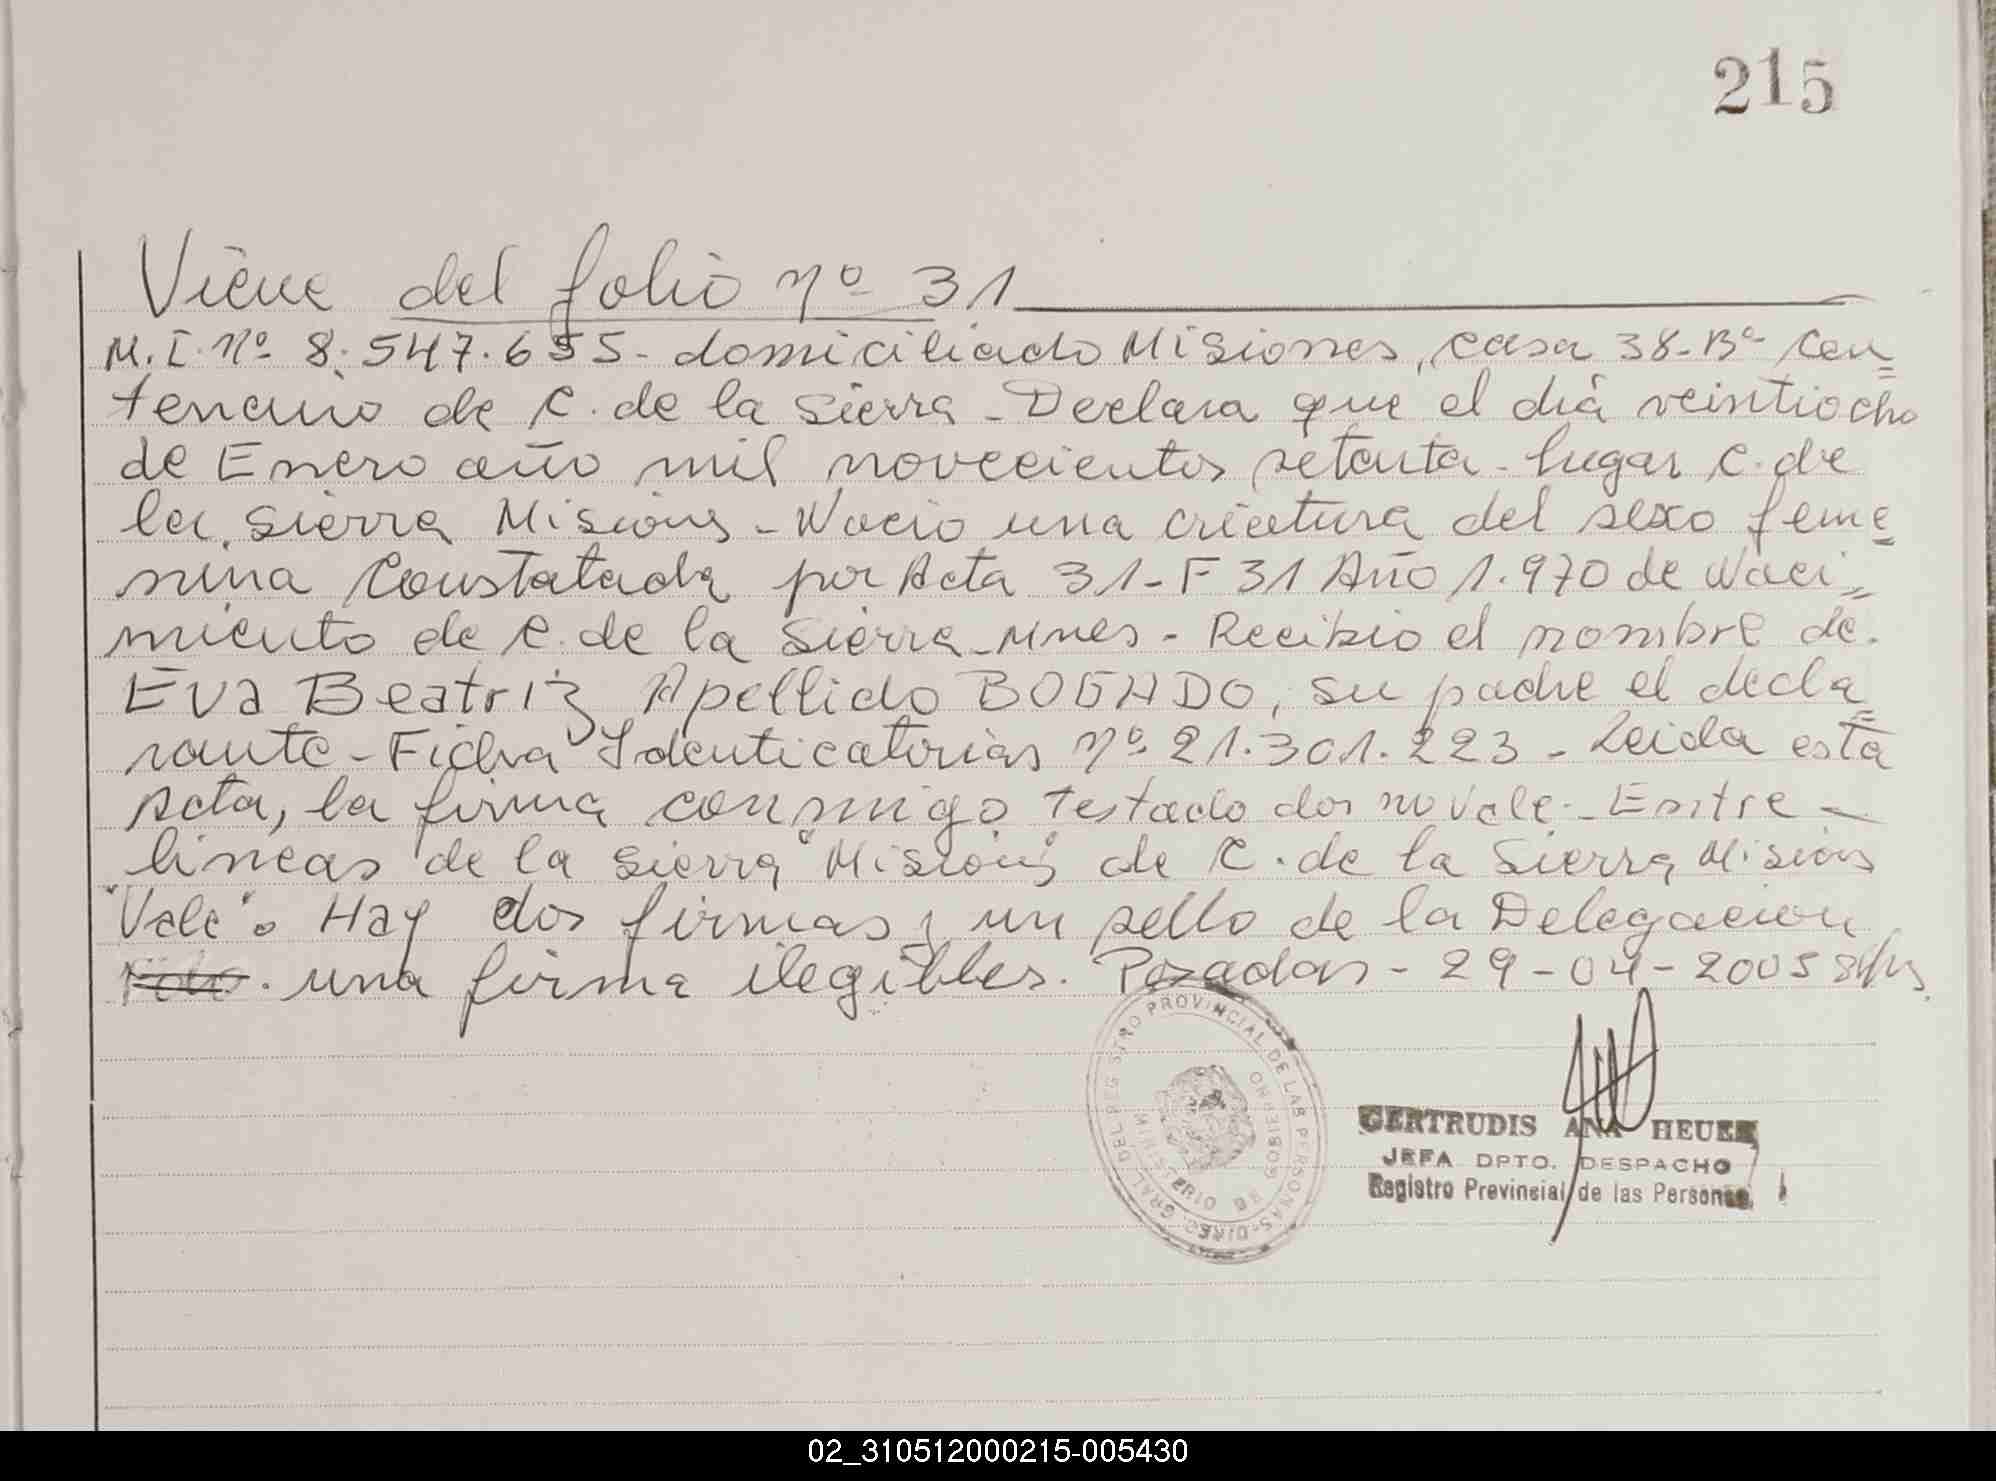 215
Viene del folio nº 31
M.I. nº 8.547.655- domiciliado Misiones, casa 38-Bº Cen=
tenario de C. de la Sierra - Declara que el día veintiocho
de Enero año mil novecientos setenta - lugar C. de
la Sierra Misiones - Nacio una criatura del sexo feme=
nina Constatada por Acta 31-F 31 Año 1.970 de Naci=
miento de C. de la Sierra Mnes - Recibio el nombre de.
Eva Beatriz Apellido BOGADO, su padre el decla=
rante - Ficha Identicatorias nº 21.301.223 - Leida esta
Acta, la firma conmigo testado dos no vale - Entre -
lineas de la Sierra "Misiones" de C. de la Sierra Misiones
"Vale". Hay dos firmas y un sello de la Delegacion
una firma ilegibles. Posadas - 29-04-2005
REGISTRO PROVINCIAL DE LAS PERSONAS - DIREC. GRAL. DEL
GERTRUDIS ANA HEUER
JEFA DPTO. DESPACHO
Registro Provincial de las Personas
02_310512000215-005430